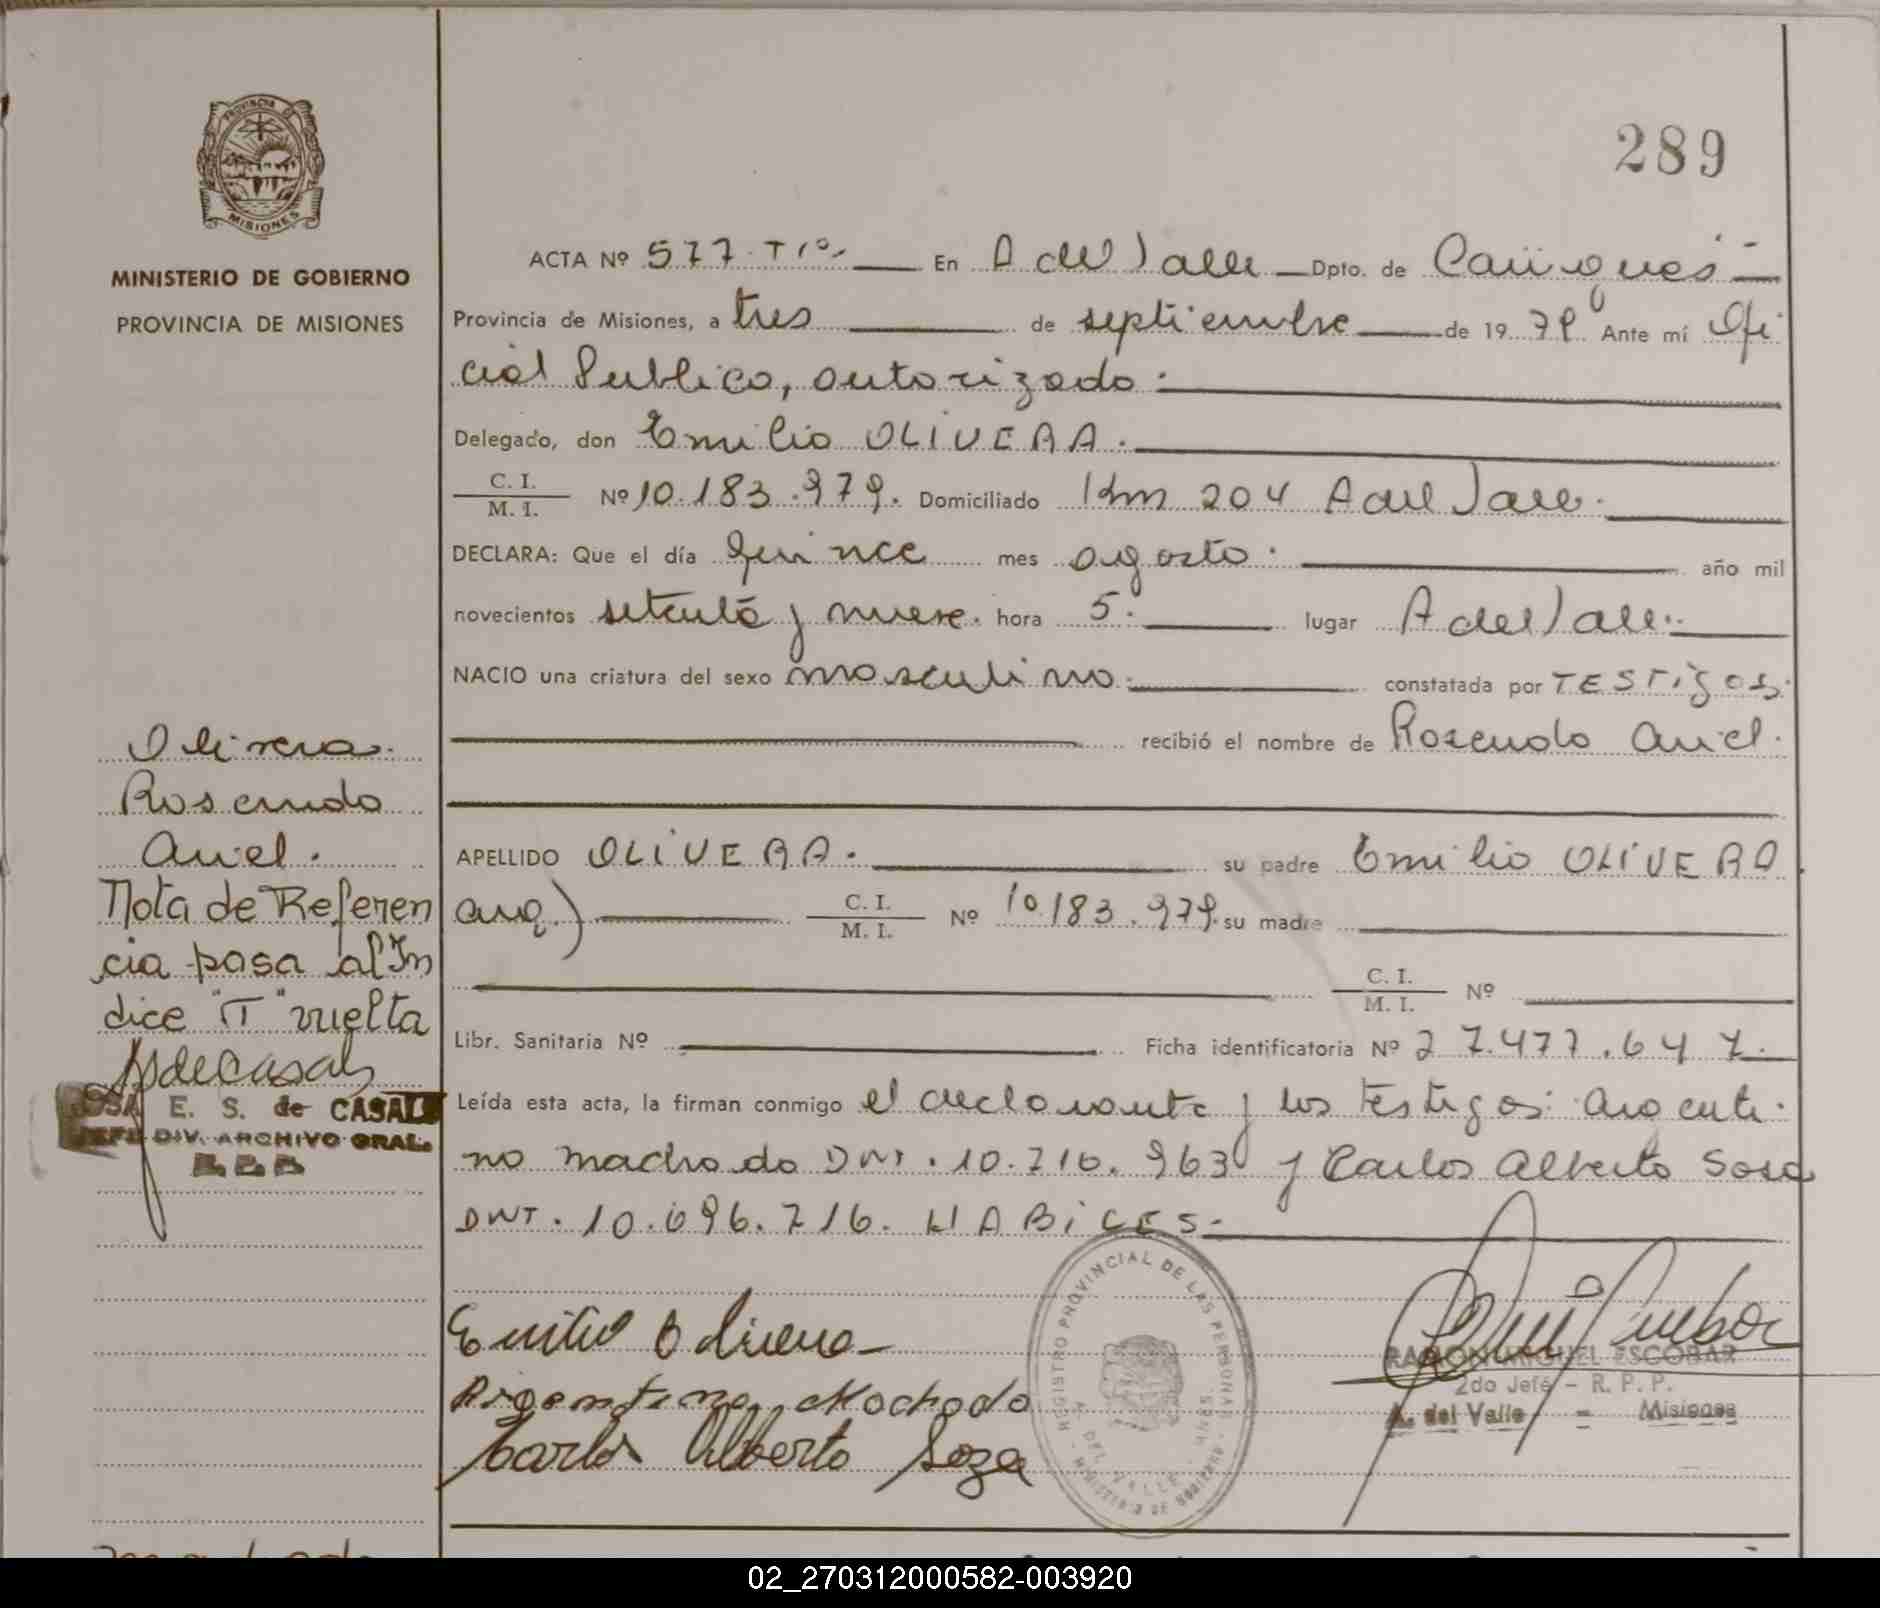 PROVINCIA DE
MISIONES
MINISTERIO DE GOBIERNO
PROVINCIA DE MISIONES
289
ACTA Nº 577. Tº. En A del Valle Dpto. de Cainguás
Provincia de Misiones, a tres de septiembre de 1979. Ante mí Ofi
cial Publico, autorizado:
Delegado, don Emilio OLIVERA.
C. I.
M. I. Nº 10.183.979. Domiciliado Km 204 A del Valle.
DECLARA: Que el día quince mes agosto. año mil
novecientos setenta y nueve. hora 5. lugar A del Valle.
NACIO una criatura del sexo masculino. constatada por TESTigos.
recibió el nombre de Rosendo Ariel.
APELLIDO OLIVERA. su padre Emilio OLIVERA
arg.) C. I.
M. I. Nº 10.183.979. su madre
C. I.
M. I. Nº
Libr. Sanitaria Nº Ficha identificatoria Nº 27.477.647.
Leída esta acta, la firman conmigo el declarante y los testigos: Argenti
no Machado DNI. 10.710.963 y Carlos Alberto Sosa
DNI. 10.696.716. HABILES.
Olivera.
Rosendo
Ariel.
Nota de Referen
cia pasa al In
dice "T" vuelta
E. S. de CASALS
JEFE DIV. ARCHIVO GRAL.
Emilio Olivera
Argentino Machado
Carlos Alberto Soza
REGISTRO PROVINCIAL DE LAS PERSONAS
A. DEL VALLE - MNES.
MINISTERIO DE GOBIERNO
RAMON MIGUEL ESCOBAR
2do Jefe - R. P. P.
A. del Valle - Misiones
02_270312000582-003920